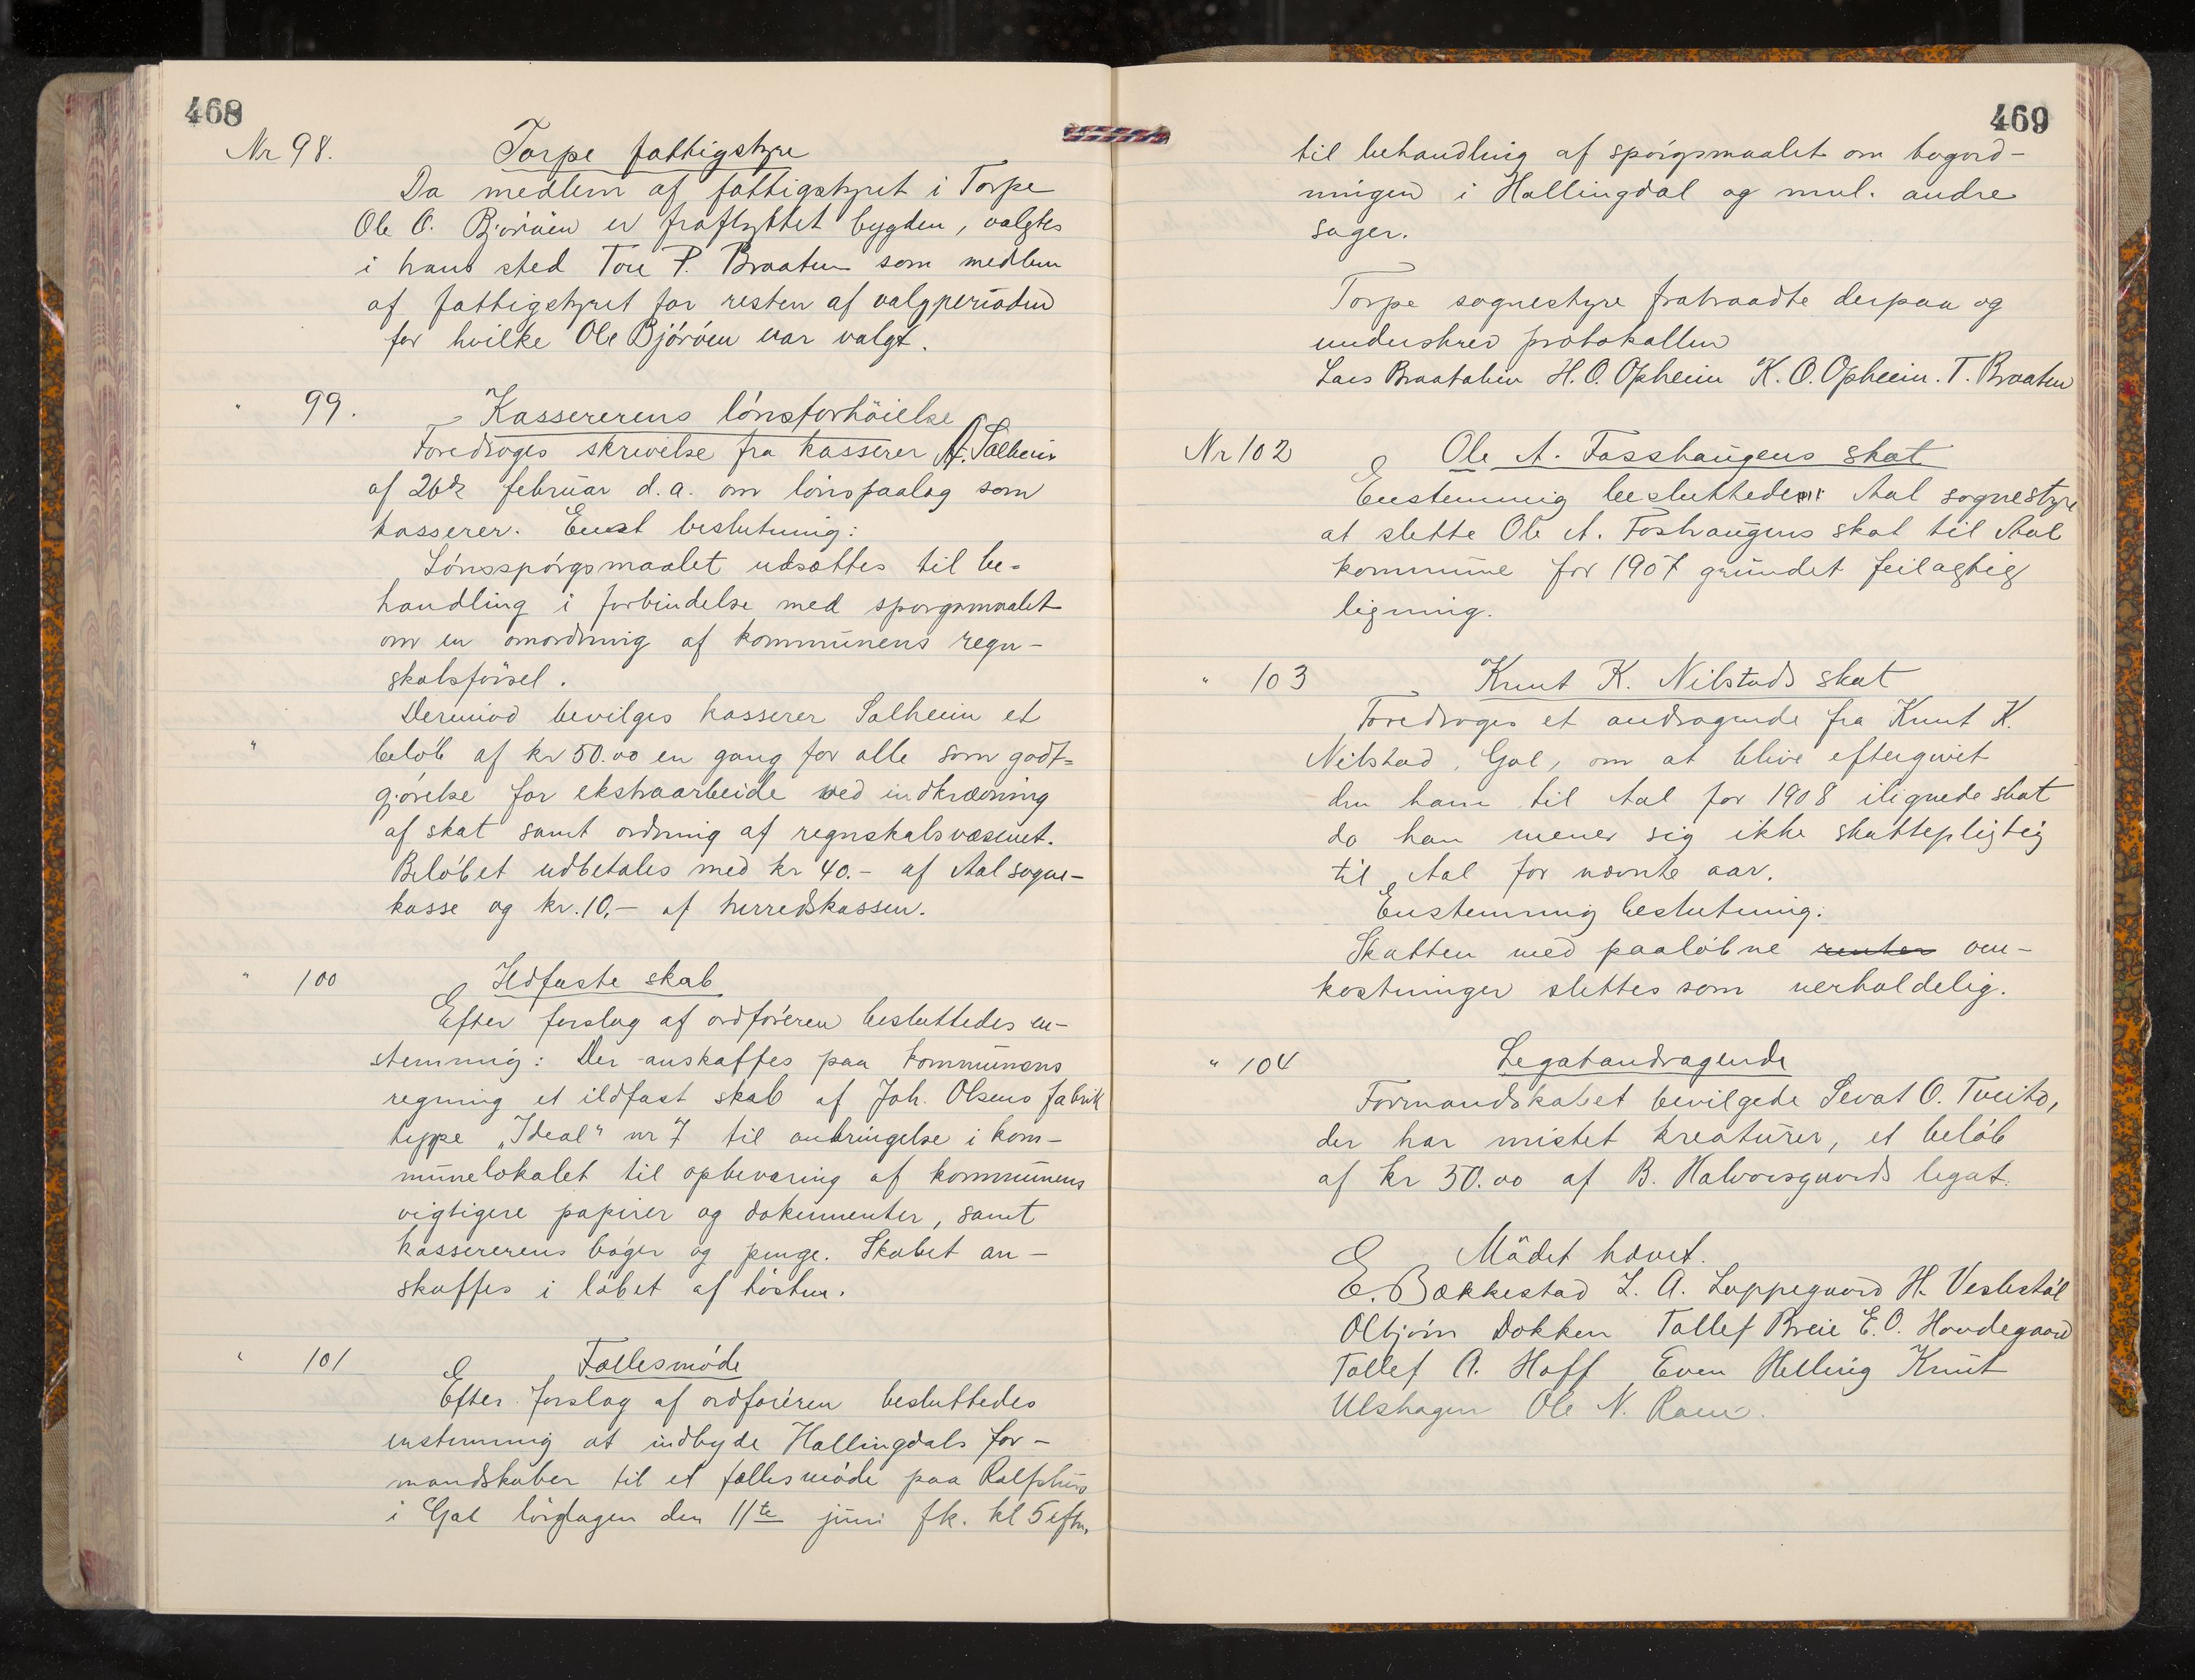 468
Nr 98. Torpe fattigstyre
Da medlem af fattigstyret i Torpe
Ole O. Björöen er fraflyttet bygden, valgtes
i hans sted Tore P. Braaten som medlem
af fattigstyret for resten af valgperioden
for hvilke Ole Björöen var valgt.
" 99. Kassererens lönsforhöielse
Foredroges skrivelse fra kasserer A. Salheim
af 26de februar d.a. om lönspaalag som
kasserer. Enst beslutning:
Lönsspörgsmaalet udsættes til be-
handling i forbindelse med spörgsmaalet
om en omordning af kommunens regn-
skabsförsel.
Derimod bevilges kasserer Salheim et
" belöb af kr 50.00 en gang for alle som godt-
gjörelse for ekstraarbeide ved indkrævning
af skat samt ordning af regnskabsvæsenet.
Belöbet udbetales med kr 40.- af Aal sogne-
kasse og kr. 10,- af herredskassen.
" 100 Ildfaste skab
Efter forslag af ordföreren besluttedes en-
stemmig: Der anskaffes paa kommunens
regning et ildfast skab af Joh. Olsens fabrik
type "Ideal" nr 7 til anbringelse i kom-
munelokalet til opbevaring af kommunens
vigtigere papirer og dokumenter, samt
kassererens böger og penge. Skabet an-
skaffes i löbet af hösten.
" 101 Fællesmöde
Efter forslag af ordföreren besluttedes
enstemmig at indbyde Hallingdals for-
mandskaber til et fællesmöde paa Rolfshus
i Gol lördagen den 11te juni fk. kl 5 eftm.
469
til behandling af spörgsmaalet om
ningen i Hallingdal og mul. andre
sager.
Torpe sognestyre fratraadte derpaa og
underskrev protokollen
Lars Braatalien H. O. Opheim K. O. Opheim. T. Braaten
Nr 102 Ole A. Fosshaugens skat
Enstemmig besluttede Aal sognestyre
at slette Ole A. Foshaugens skat til Aal
kommune for 1907 grundet feilagtig
ligning.
" 103 Knut K. Nibstads skat
Foredroges et andragende fra Knut K.
Nibstad, Gol, om at blive eftergivet
den ham til Aal for 1908 ilignede skat
da han mener sig ikke skattepligtig
til Aal for nævnte aar.
Enstemmig beslutning:
Skatten med paalöbne renter om-
kostninger slettes som uerholdelig.
" 104 Legatandragende
Formandskabet bevilgede Sevat O. Tveito,
der har mistet kreaturer, et belöb
af kr 30.00 af B. Halvorsgaards legat.
Mödet hævet.
E. Bækkestad L. A. Loppegaard H. Veslestöl
Olbjörn Dokken Tollef Breie E. O. Hovdegaard
Tollef A. Hoff Even Helling Knut
Ulshagen Ole N.